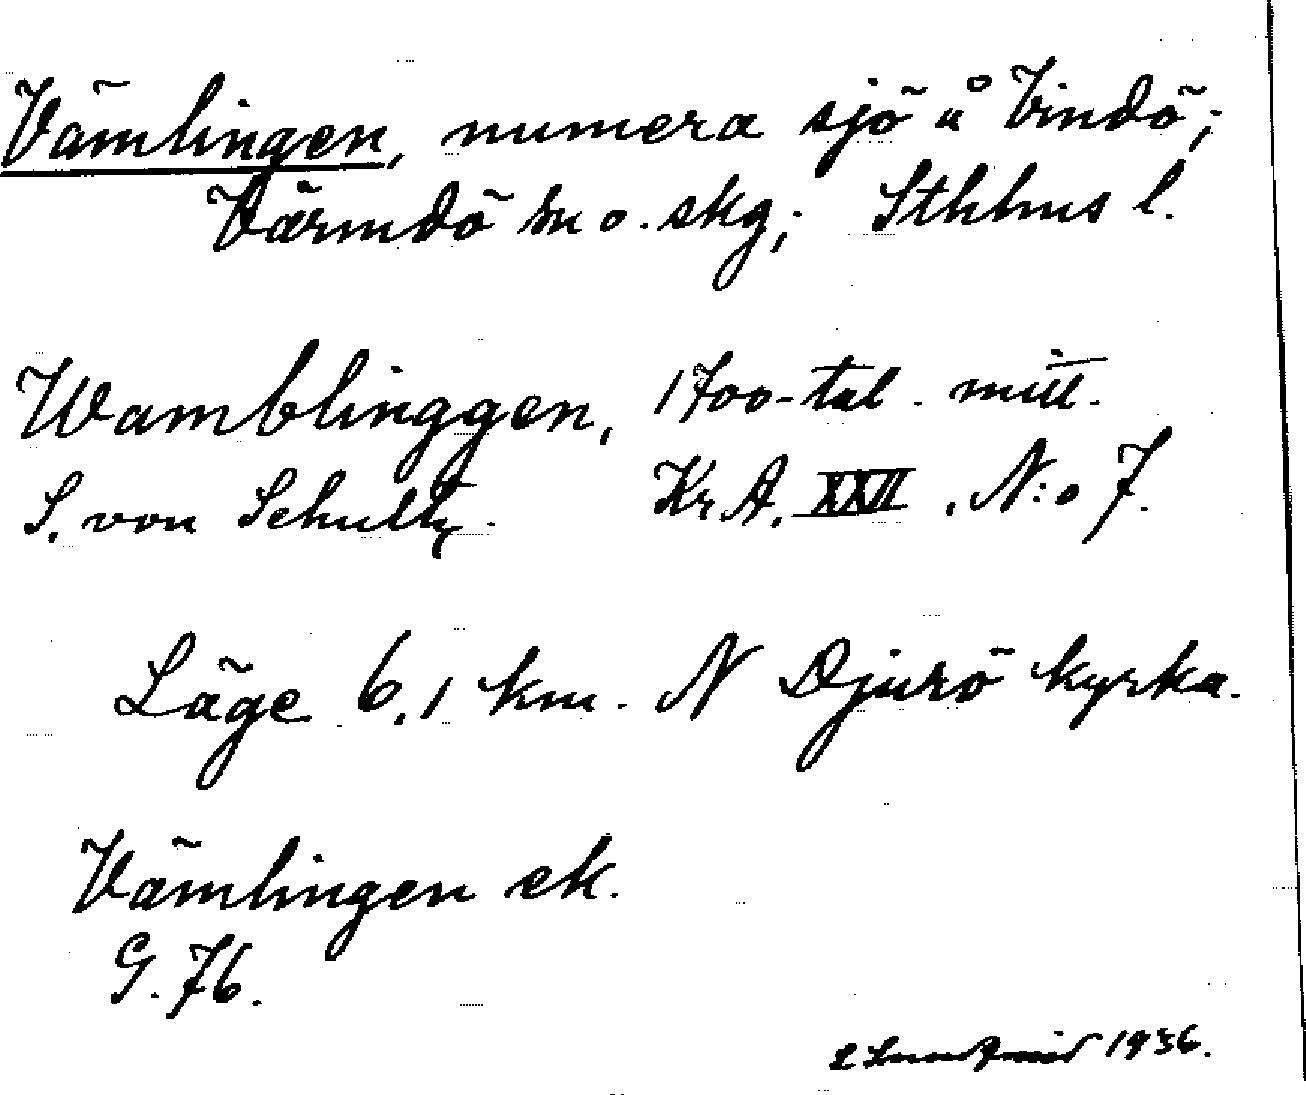 Vämlingen, numera sjö å Vindö;
Värmdö sn o. skg; Sthlms l.
Wamblinggen, 1700-tal. mitt.
S. von Schultz. Kr A. XXII . N:o 7.
Läge 6,1 km. N Djurö kyrka.
Vämlingen ek.
G. 76.
1936.